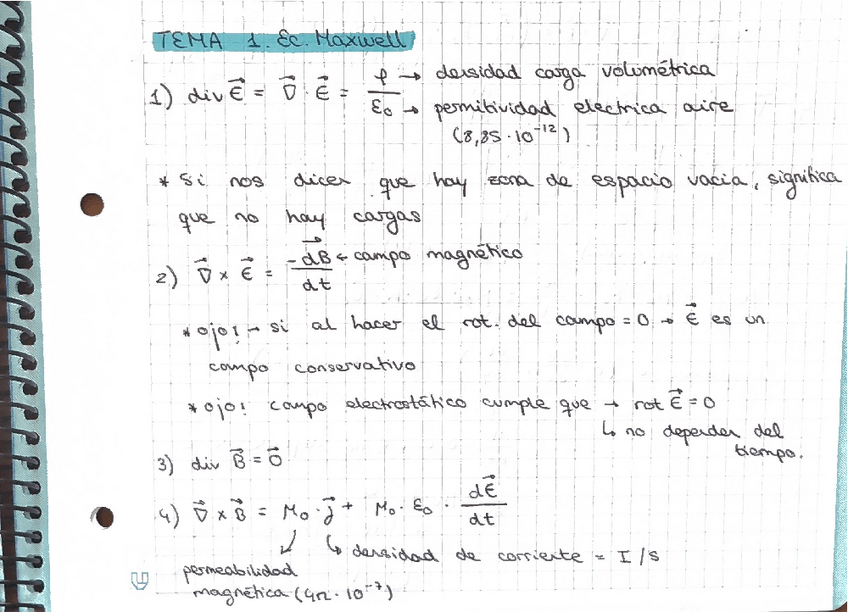 TEMA 1. Ec. Maxwell
1) div E⃗ = ∇⃗ · E⃗ = ρ → densidad carga volumétrica
ε₀ → permitividad electrica aire
(8,85 · 10⁻¹²)
* Si nos dicen que hay zona de espacio vacia, significa
que no hay cargas
2) ∇⃗ × E⃗ = -dB⃗ ← campo magnético
dt
* ojo! → si al hacer el rot. del campo = 0 → E⃗ es un
campo conservativo
* ojo! campo electrostático cumple que → rot E⃗ = 0
↳ no depender del
tiempo.
3) div B⃗ = 0⃗
4) ∇⃗ × B⃗ = M₀ · j⃗ + M₀ · ε₀ · dE⃗
dt
↳ densidad de corriente = I/S
permeabilidad
magnética (4π · 10⁻⁷)